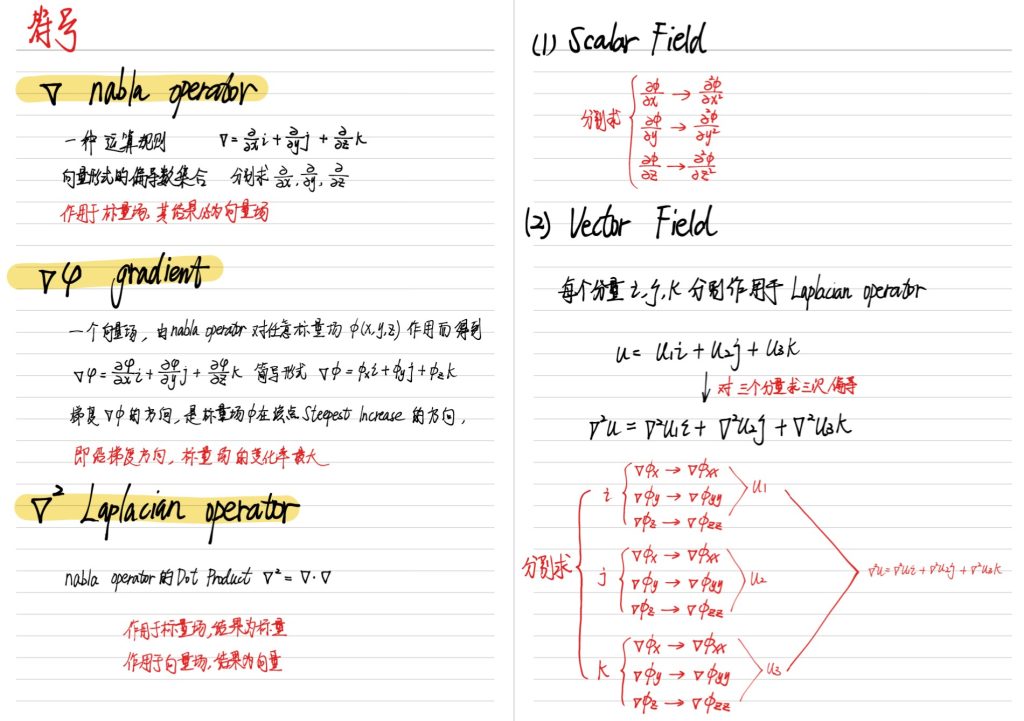 符号
∇ nabla operator
一种运算规则 ∇=∂/∂x i+∂/∂y j+∂/∂z k
向量形式的偏导数集合 分别求 ∂/∂x, ∂/∂y, ∂/∂z
作用于标量场,其结果为向量场
∇φ gradient
一个向量场,由nabla operator 对任意标量场 ϕ(x,y,z) 作用而得到
∇φ=∂φ/∂x i+∂φ/∂y j+∂φ/∂z k 简写形式 ∇ϕ=ϕxi+ϕyj+ϕzk
梯度∇ϕ的方向,是标量场ϕ在该点Steepest Increase的方向,
即沿梯度方向,标量场的变化率最大
∇² Laplacian operator
nabla operator的Dot Product ∇²=∇·∇
作用于标量场,结果为标量
作用于向量场,结果为向量
(1) Scalar Field
分别求
∂ϕ/∂x → ∂²ϕ/∂x²
∂ϕ/∂y → ∂²ϕ/∂y²
∂ϕ/∂z → ∂²ϕ/∂z²
(2) Vector Field
每个分量 i,j,k 分别作用于 Laplacian operator
u= u₁i+u₂j+u₃k
对三个分量求三次偏导
∇²u=∇²u₁i+∇²u₂j+∇²u₃k
分别求
i
∇ϕx → ∇ϕxx
∇ϕy → ∇ϕyy
∇ϕz → ∇ϕzz
u₁
j
∇ϕx → ∇ϕxx
∇ϕy → ∇ϕyy
∇ϕz → ∇ϕzz
u₂
k
∇ϕx → ∇ϕxx
∇ϕy → ∇ϕyy
∇ϕz → ∇ϕzz
u₃
∇²u=∇²u₁i+∇²u₂j+∇²u₃k